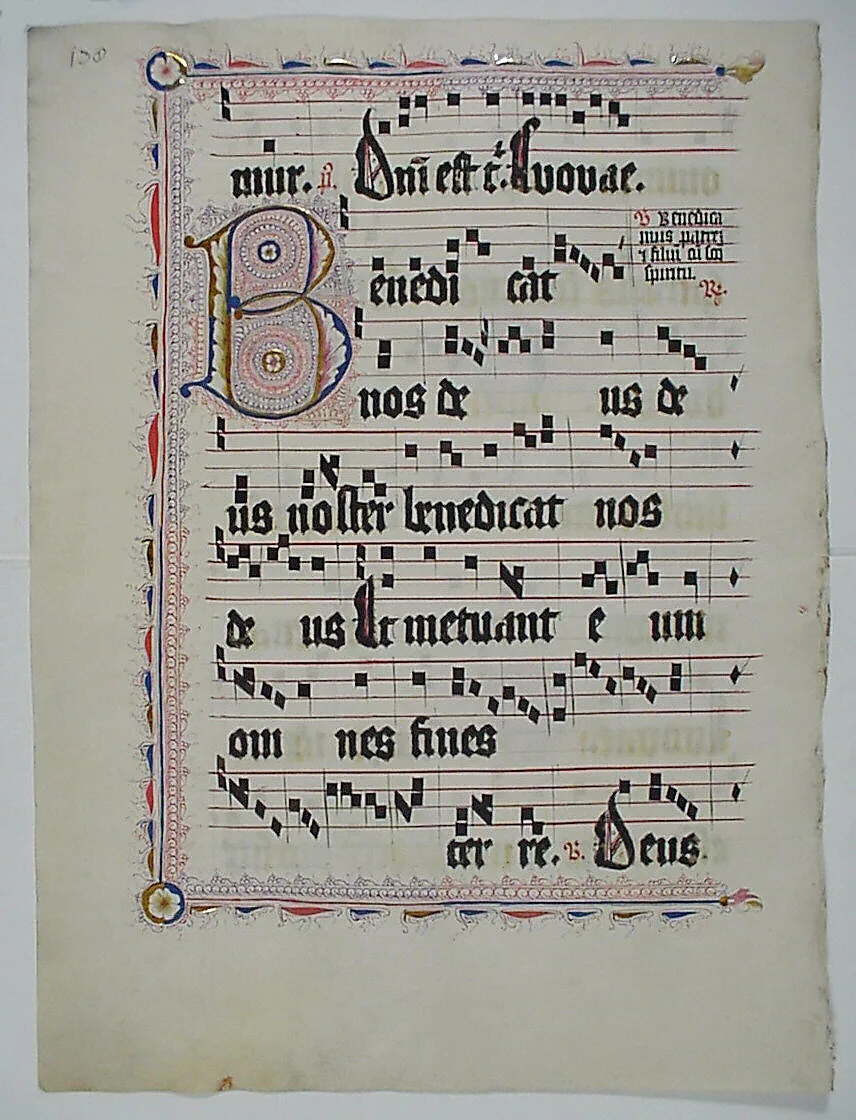 130
mur. p. Dni est t. Evovae.
V Benedica
mus patrē
⁊ filiū cū sc̄o
spiritu. R.
Benedi cat
nos de us de
us noster benedicat nos
de us Et metuant e um
om nes fines
ter re. V. Deus.